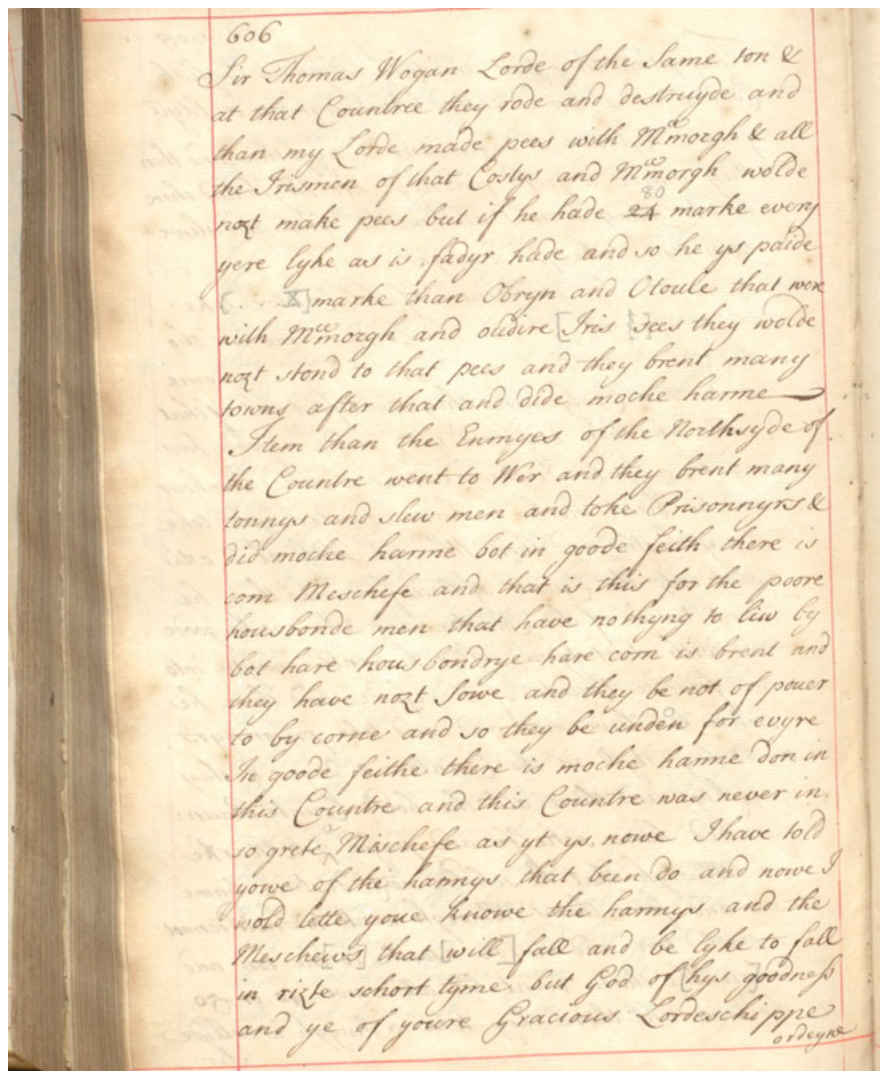 606
Sir Thomas Wogan Lorde of the Same ton &
at that Countree they rode and destruyde and
than my Lorde made pees with Mccmorgh & all
the Irismen of that Costys and Mccmorgh wolde
nozt make pees but if he hade 24 80 marke every
yere lyke as is fadyr hade and so he ys paide
. . . X] marke than Obryn and Otoule that were
with Mccmorgh and oudire [Iris] sees they wolde
nozt stond to that pees and they brent many
towns after that and dide moche harme
Item than the Enmyes of the Northsyde of
the Countre went to Wer and they brent many
tonnys and slew men and toke Prisonnyrs &
did moche harme bot in goode feith there is
com Meschefe and that is this for the poore
housbonde men that have nothyng to liw by
bot hare housbondrye hare corn is brent and
they have nozt Sowe and they be not of pouer
to by corne and so they be unden for evyre
In goode feithe there is moche harme don in
this Countre and this Countre was never in
so grete Mischefe as yt ys nowe I have told
yowe of the harmys that been do and nowe I
wold lette youe knowe the harmys and the
Mesche[ws] that [will] fall and be lyke to fall
in rizte schort tyme but God of [hys] goodness
and ye of youre Gracious Lordeschippe
ordeyne